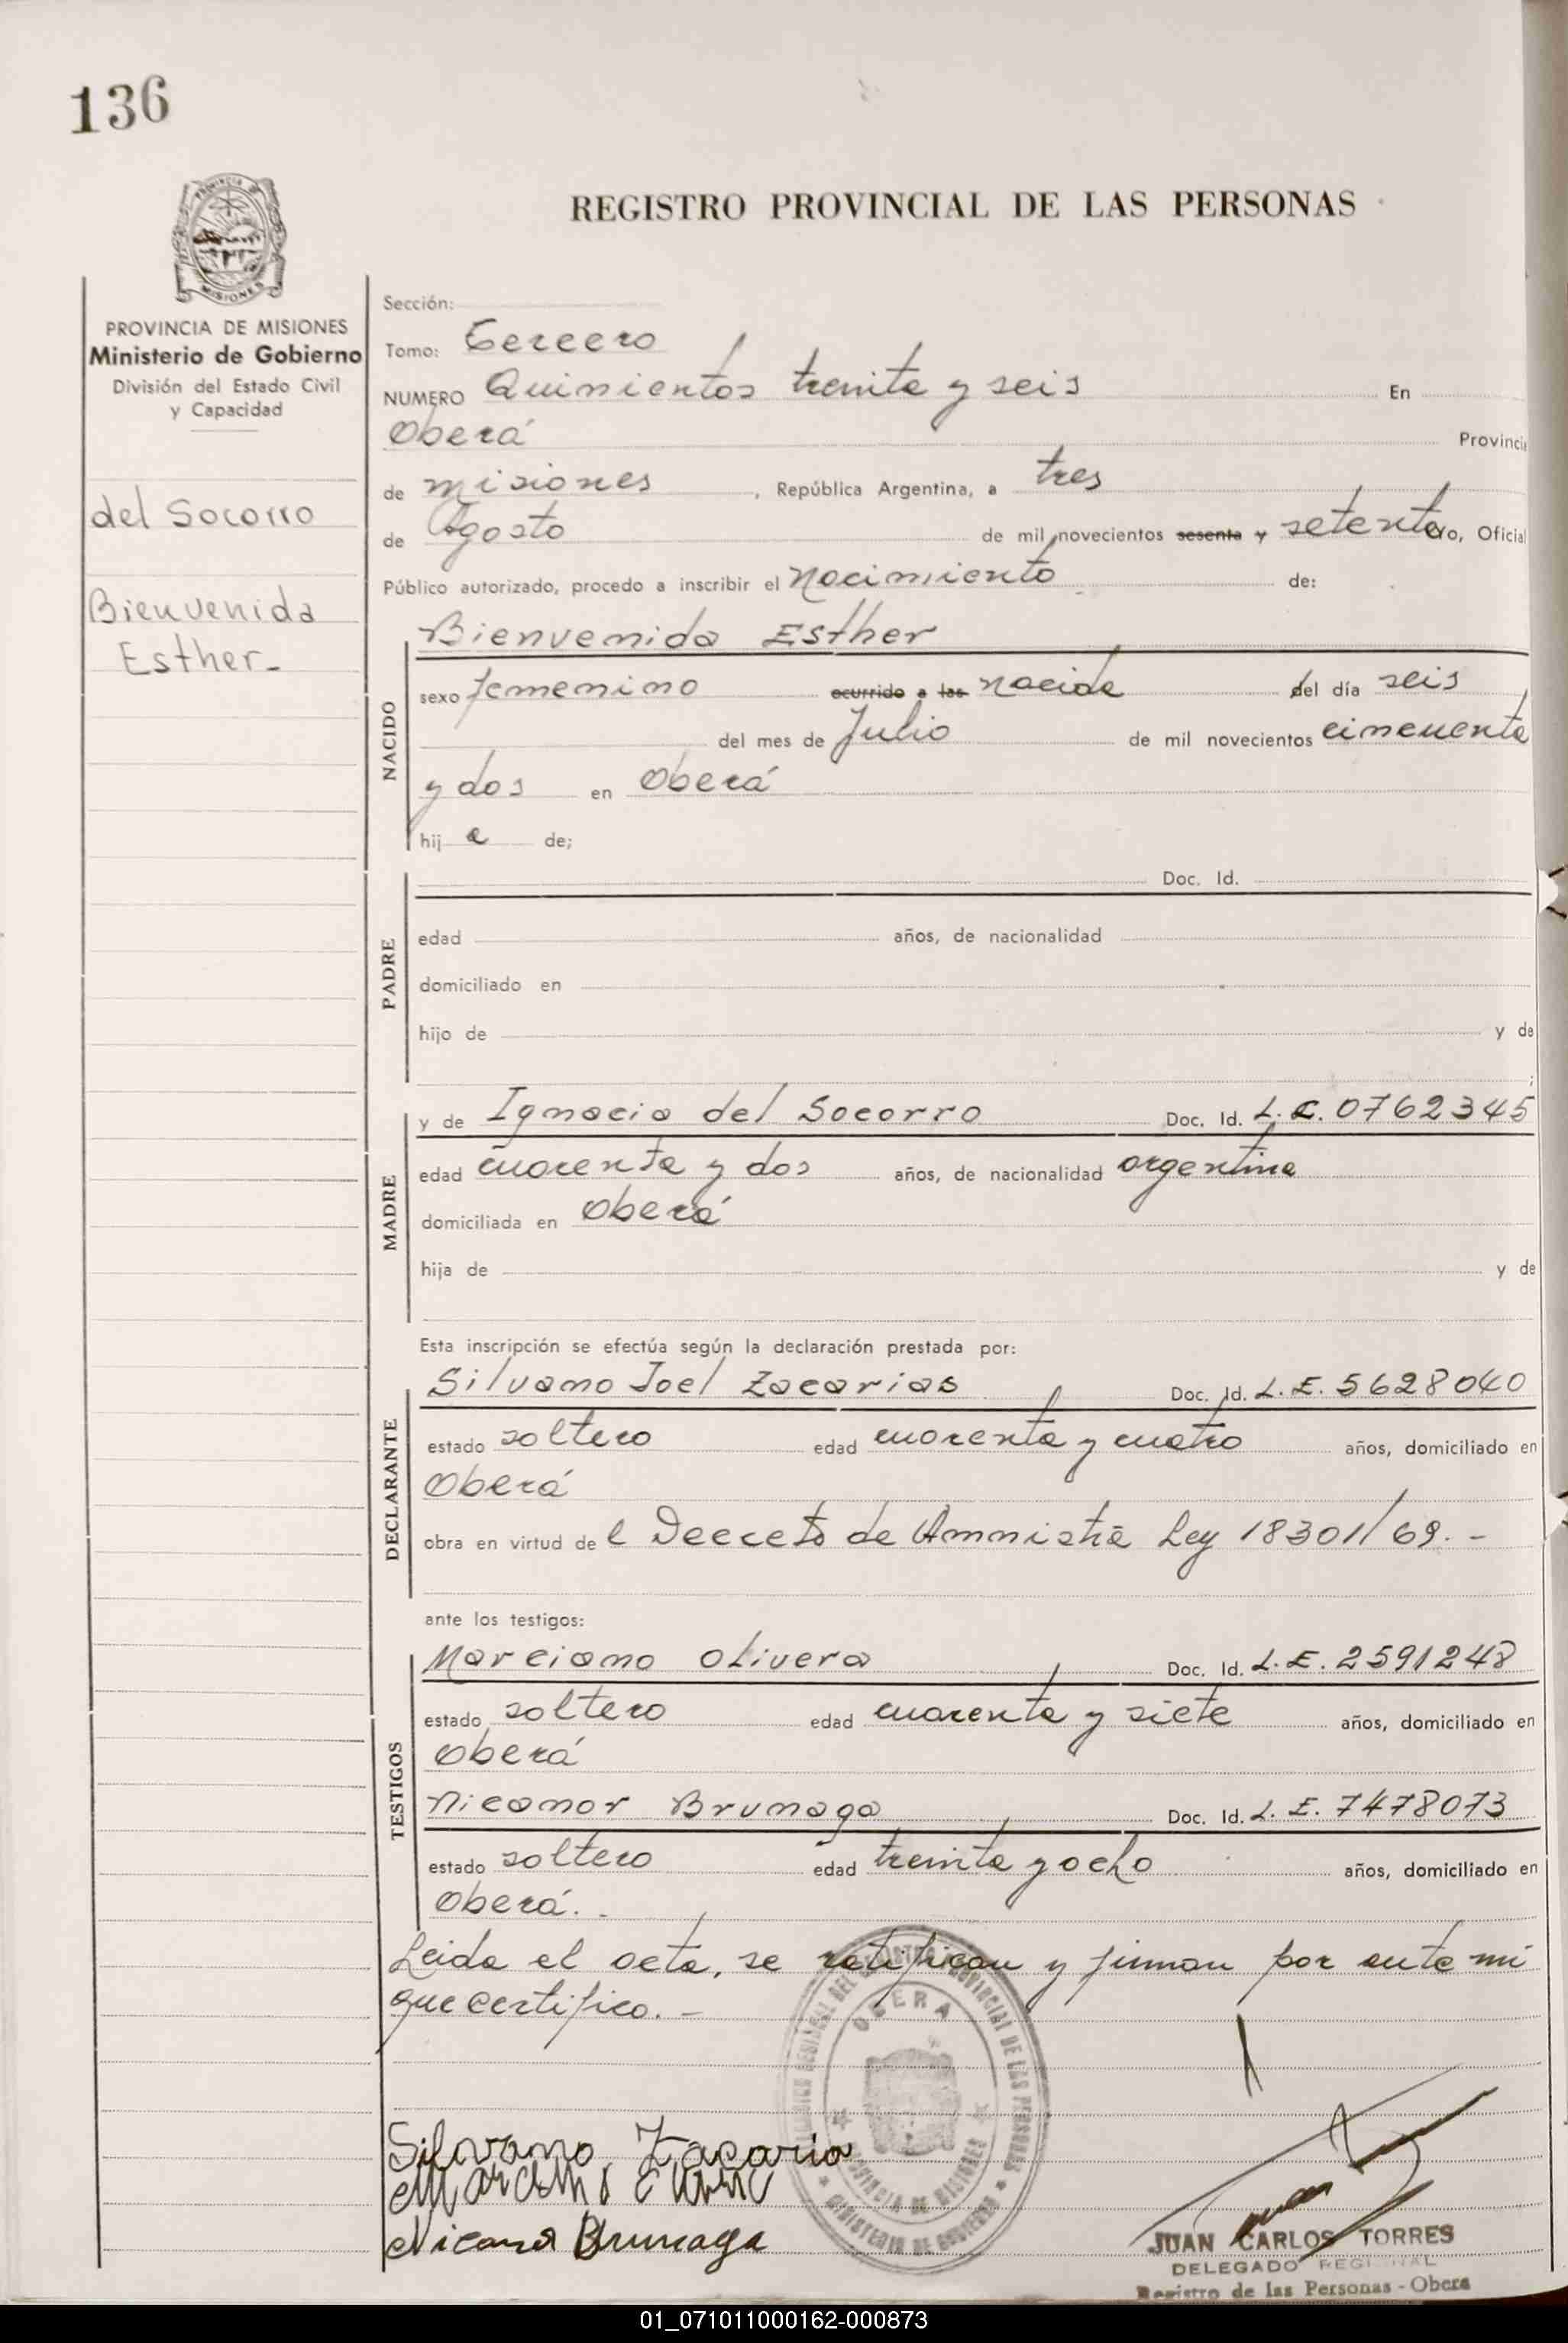 136
REGISTRO PROVINCIAL DE LAS PERSONAS
PROVINCIA DE MISIONES
Ministerio de Gobierno
División del Estado Civil
y Capacidad
del Socorro
Bienvenida
Esther-
Sección:
Tomo: Tercero
NUMERO Quinientos treinta y seis En
Oberá Provinci
de misiones , República Argentina, a tres
de Agosto de mil novecientos sesenta y setenta yo, Oficial
Público autorizado, procedo a inscribir el nacimiento de:
NACIDO
Bienvenida Esther
sexo femenino ocurrido a las nacida del día seis
del mes de Julio de mil novecientos cincuenta
y dos en Oberá
hij a de;
PADRE
Doc. Id.
edad años, de nacionalidad
domiciliado en
hijo de y de
;
MADRE
y de Ignacia del Socorro Doc. Id. L.C. 0762345
edad cuarenta y dos años, de nacionalidad argentina
domiciliada en Oberá
hija de y de
Esta inscripción se efectúa según la declaración prestada por:
DECLARANTE
Silvano Joel Zacarias Doc. Id. L.E. 5628040
estado soltero edad cuarenta y cuatro años, domiciliado en
Oberá
obra en virtud de l Decreto de Amnistia Ley 18301/69.-
ante los testigos:
TESTIGOS
Marciano Olivera Doc. Id. L.E. 2591248
estado soltero edad cuarenta y siete años, domiciliado en
Oberá
Nicanor Brunaga Doc. Id. L.E. 7478073
estado soltero edad treinta y ocho años, domiciliado en
Oberá.-
Leida el acta, se ratifican y firman por ante mi
que certifico.-
OBERA
PROVINCIA DE MISIONES
MINISTERIO DE GOBIERNO
Silvano Zacaria
Nicanor Brunaga
JUAN CARLOS TORRES
DELEGADO REGIONAL
Registro de las Personas - Obera
01_071011000162-000873